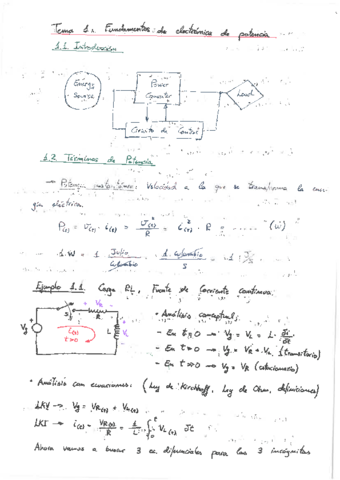 Tema 1. Fundamentos de electrónica de potencia
1.1 Introducción
Energy Source
Power Converter
Load
Circuito de Control
1.2 Términos de Potencia
→ Potencia instantánea: Velocidad a la que se transforma la ener-
gía eléctrica.
P(t) = v(t) · i(t) = v(t)² / R = i(t)² · R = (W)
1 W = 1 Julio / 1 J/s
Ejemplo 1.1 Carga RL, Fuente de Corriente continua.
VR
S
R
i(t)
t>0
Vg
L
VL
• Análisis conceptual:
- En t=0 → Vg = VL = L · di/dt
- En t>0 → Vg = VR + VL (transitorio)
- En t=∞ → Vg = VR (estacionario)
• Análisis con ecuaciones: (Ley de Kirchhoff, Ley de Ohm, definiciones)
LKV → Vg = VR(t) + VL(t)
LKI → i(t) = VR(t)/R = 1/L ∫ VL(t) dt
Ahora vamos a buscar 3 ec. diferenciales para las 3 incógnitas